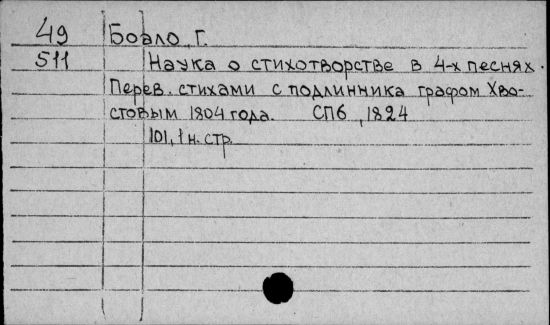 49 Боало, Г.
511 Наука о стихотворстве в 4-х песнях.
Перев. стихами с подлинника графом Хво-
стовым 1804 года. СПб, 1824
101, 1 н. стр.